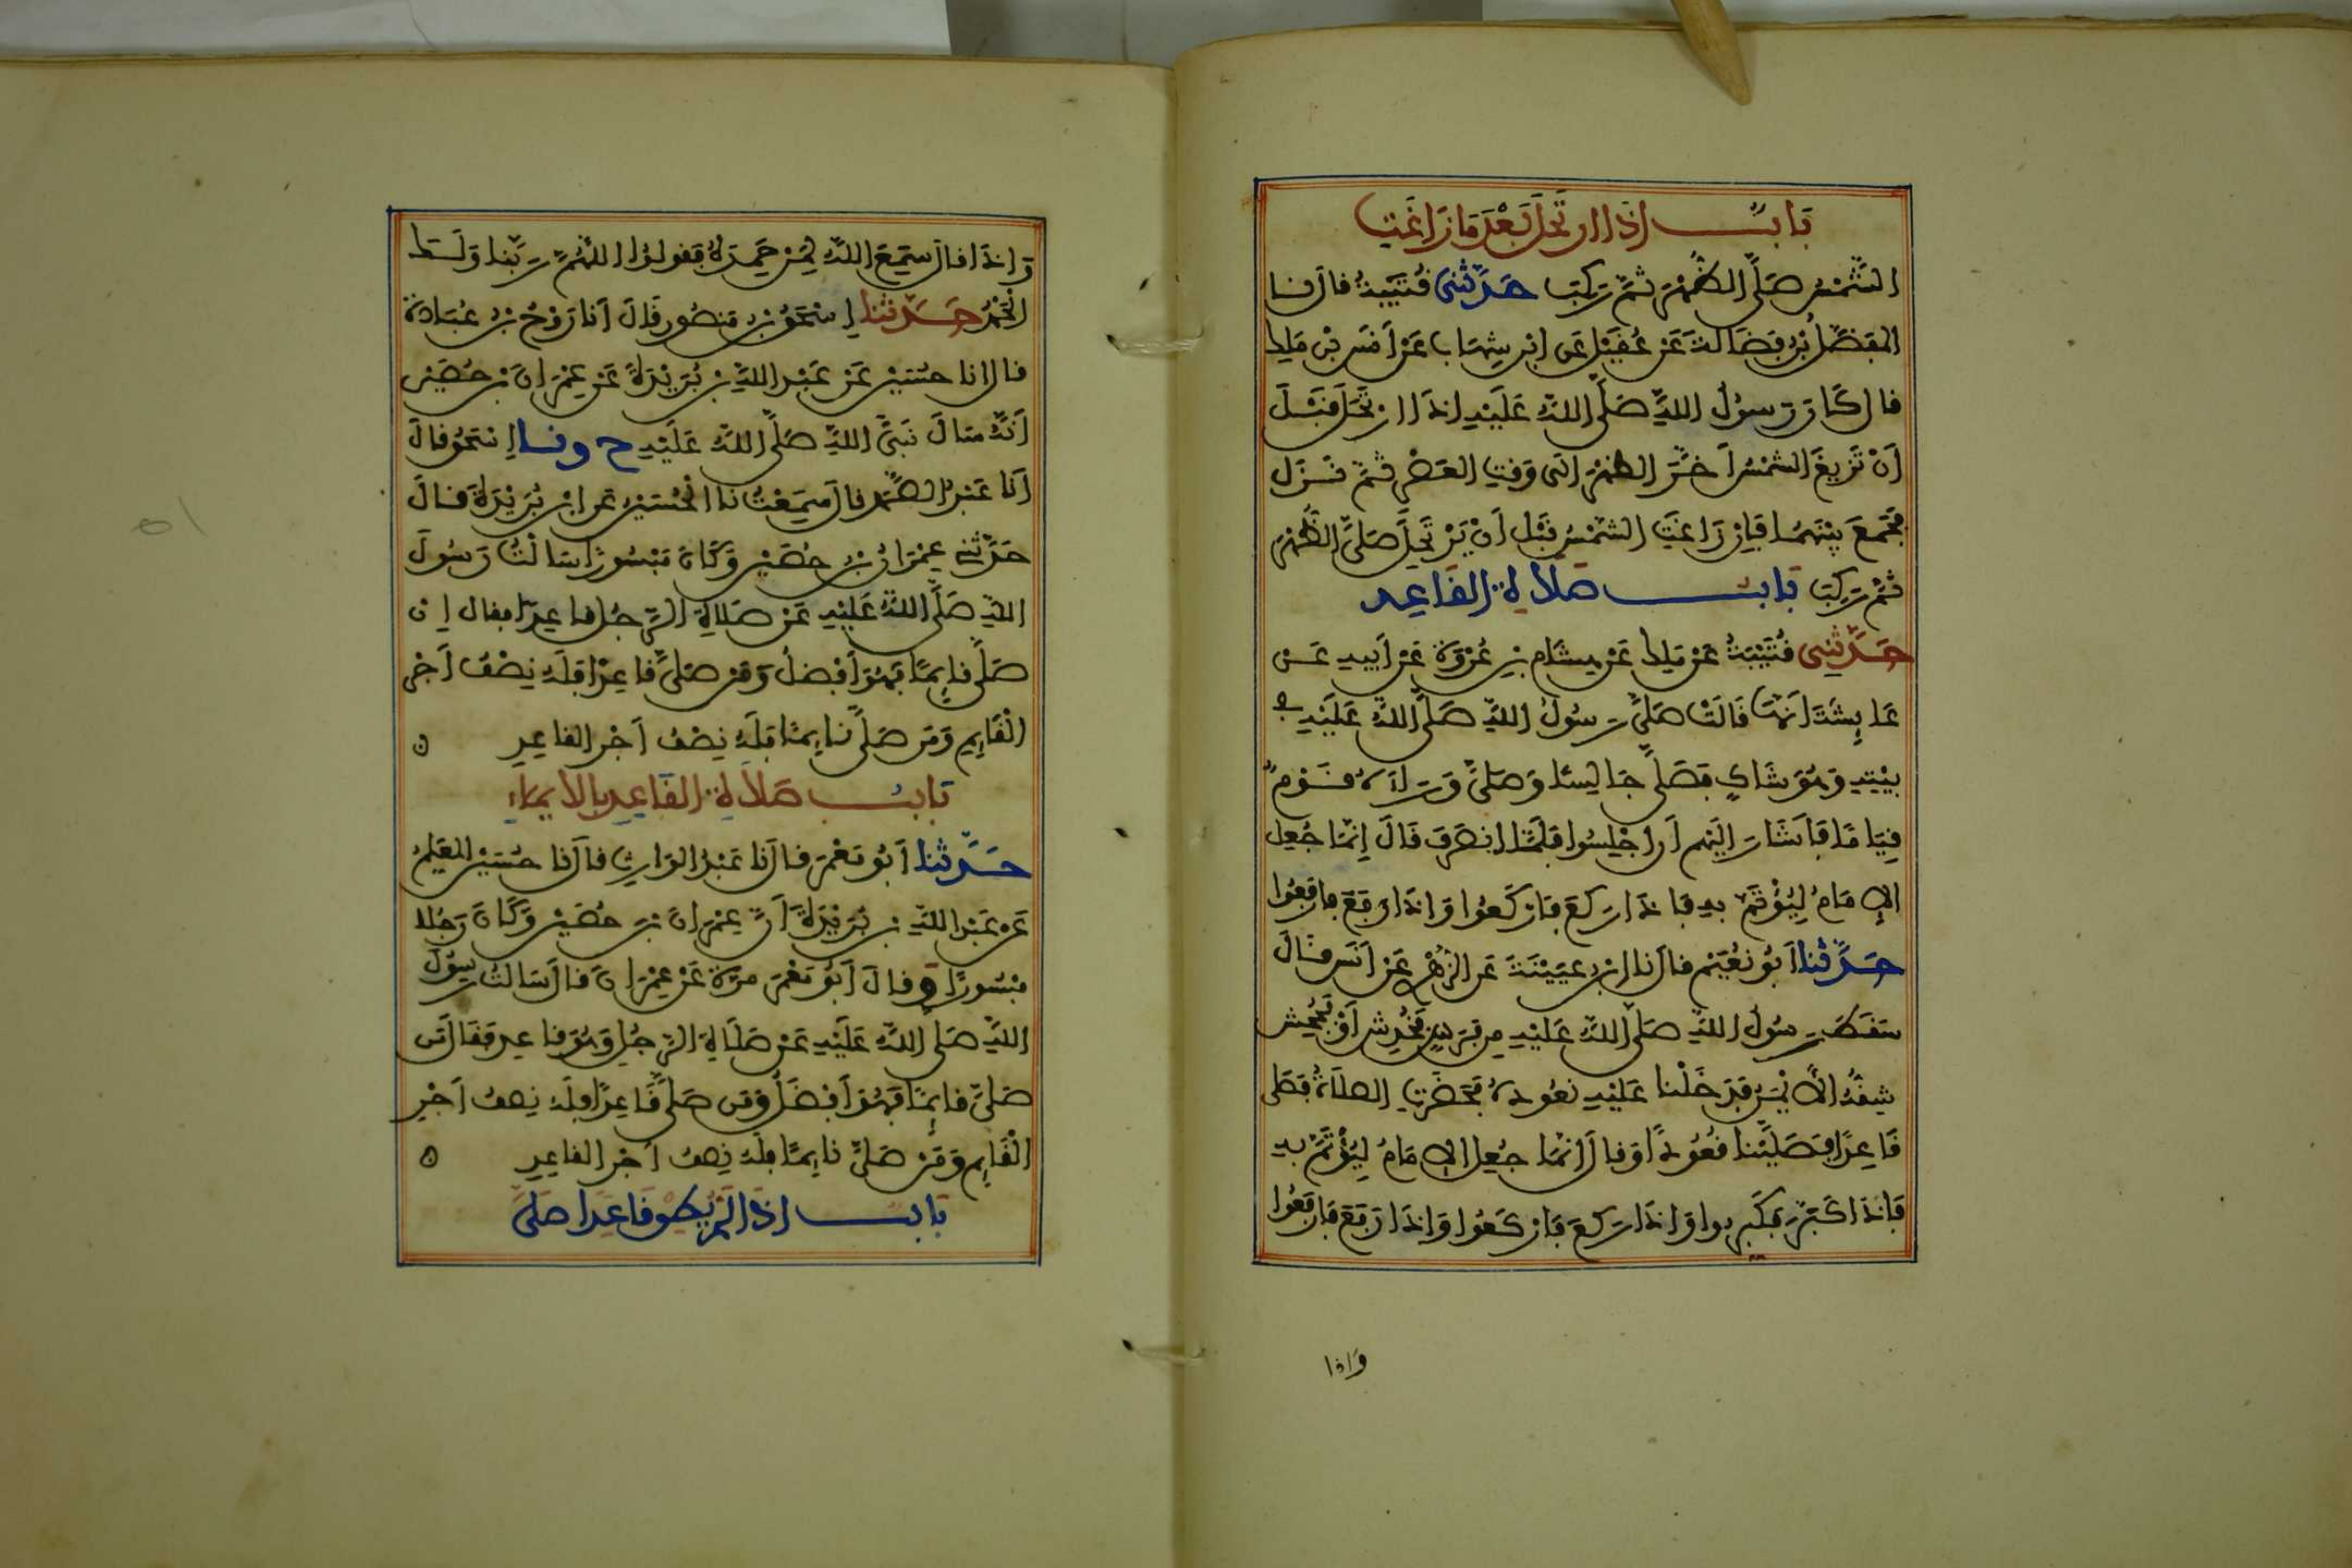 بَابٌ اِذَا ارْتَحَلَ بَعْدَ مَا زَاغَتِ
الشَّمْسُ صَلَّى الظُّهْرَ ثُمَّ رَكِبَ حَدَّثَنِي قُتَيْبَةُ قال نا
المُفَضَّلُ بْنُ فَضَالَةَ عَنْ عُقَيْلٍ عَنِ ابْنِ شِهَابٍ عَنْ أَنَسِ بْنِ مَلِكٍ
قال كَانَ رَسُولُ اللَّهِ صَلَّى اللَّهُ عَلَيْهِ اِذَا ارْتَحَلَ قَبْلَ
أَنْ تَزِيغَ الشَّمْسُ أَخَّرَ الظُّهْرَ اِلَى وَقْتِ العَصْرِ ثُمَّ نَزَلَ
فَجَمَعَ بَيْنَهُمَا فَإِنْ زَاغَتِ الشَّمْسُ قَبْلَ أَنْ يَرْتَحِلَ صَلَّى الظُّهْرَ
ثُمَّ رَكِبَ بَابُ صَلَاةِ القَاعِدِ
حَدَّثَنِي قُتَيْبَةُ عَنْ مَلِكٍ عَنْ هِشَامِ بْنِ عُرْوَةَ عَنْ أَبِيهِ عَنْ
عَايِشَةَ أَنَّهَا قَالَتْ صَلَّى رَسُولُ اللَّهِ صَلَّى اللَّهُ عَلَيْهِ في
بَيْتِهِ وَهُوَ شَاكٍ فَصَلَّى جَالِسًا وَصَلَّى وَرَاءَهُ قَوْمٌ
قِيَامًا فَأَشَارَ إِلَيْهِمْ أَنِ اجْلِسُوا فَلَمَّا انْصَرَفَ قَالَ إِنَّمَا جُعِلَ
الإِمَامُ لِيُؤْتَمَّ بِهِ فَإِذَا رَكَعَ فَارْكَعُوا وَإِذَا رَفَعَ فَارْفَعُوا
حَدَّثَنَا أَبُو نُعَيْمٍ قال نا ابْنُ عُيَيْنَةَ عَنِ الزُّهْرِيِّ عَنْ أَنَسٍ قَالَ
سَقَطَ رَسُولُ اللَّهِ صَلَّى اللَّهُ عَلَيْهِ مِنْ فَرَسٍ فَخُدِشَ أَوْ فَجُحِشَ
شِقُّهُ الأَيْمَنُ فَدَخَلْنَا عَلَيْهِ نَعُودُهُ فَحَضَرَتِ الصَّلَاةُ فَصَلَّى
قَاعِدًا فَصَلَّيْنَا قُعُودًا وَقال إِنَّمَا جُعِلَ الإِمَامُ لِيُؤْتَمَّ بِهِ
فَإِذَا كَبَّرَ فَكَبِّرُوا وَإِذَا رَكَعَ فَارْكَعُوا وَإِذَا رَفَعَ فَارْفَعُوا
وَاذا
وَإِذَا قال سَمِعَ اللَّهُ لِمَنْ حَمِدَهُ فَقولُوا اللَّهُمَّ رَبَّنا وَلَكَ
الْحَمْدُ حَدَّثَنَا إِسْحَقُ بْنُ مَنْصُورٍ قَالَ أَنَا رَوْحُ بْنُ عُبَادَةَ
قال انا حُسَيْنٌ عَنْ عَبْدِ اللَّهِ بْنِ بُرَيْدَةَ عَنْ عِمْرَانَ بْنِ حُصَيْنٍ
أَنَّهُ سَالَ نَبِيَّ اللَّهِ صَلَّى اللَّهُ عَلَيْهِ ح ونا إِسْحَقُ قالَ
أَنَا عَبْدُ الصَّمَدِ قال سَمِعْتُ نا الْحُسَيْنُ عَنِ ابْنِ بُرَيْدَةَ قَالَ
حَدَّثَنِي عِمْرَانُ بْنُ حُصَيْنٍ وَكَانَ مَبْسُورًا سَالْتُ رَسُولَ
اللَّهِ صَلَّى اللَّهُ عَلَيْهِ عَنْ صَلَاةِ الرَّجُلِ قاعِدًا فقال إِنْ
صَلَّى قايِمًا فَهُوَ أَفْضَلُ وَمَنْ صَلَّى قَاعِدًا فَلَهُ نِصْفُ أَجْرِ
الْقَايِمِ وَمَنْ صَلَّى نَايِمًا فَلَهُ نِصْفُ أَجْرِ القاعِدِ ه
بَابُ صَلَاةِ القَاعِدِ بِالإيمَاءِ
حَدَّثَنَا أَبُو مَعْمَرٍ قال نا عَبْدُ الوَارِثِ قال نا حُسَيْنٌ المُعَلِّمُ
عَنْ عَبْدِ اللَّهِ بْنِ بُرَيْدَةَ أَنَّ عِمْرَانَ بْنَ حُصَيْنٍ وَكَانَ رَجُلًا
مَبْسُورًا وَقالَ أَبُو مَعْمَرٍ مَرَّةً عَنْ عِمْرَانَ قال سَالتُ رَسُولَ
اللَّهِ صَلَّى اللَّهُ عَلَيْهِ عَنْ صَلَاةِ الرَّجُلِ وَهُوَ قاعِدٌ فَقَالَ مَن
صَلَّى قايِمًا فَهُوَ أَفْضَلُ وَمَن صَلَّى قَاعِدًا فَلَهُ نِصفُ أَجْرِ
الْقَايِمِ وَمَنْ صَلَّى نَايِمًا فَلَهُ نِصفُ أَجْرِ القاعِدِ ه
بَابُ اِذَا لَمْ يُطِقْ قَاعِدًا صَلَّى